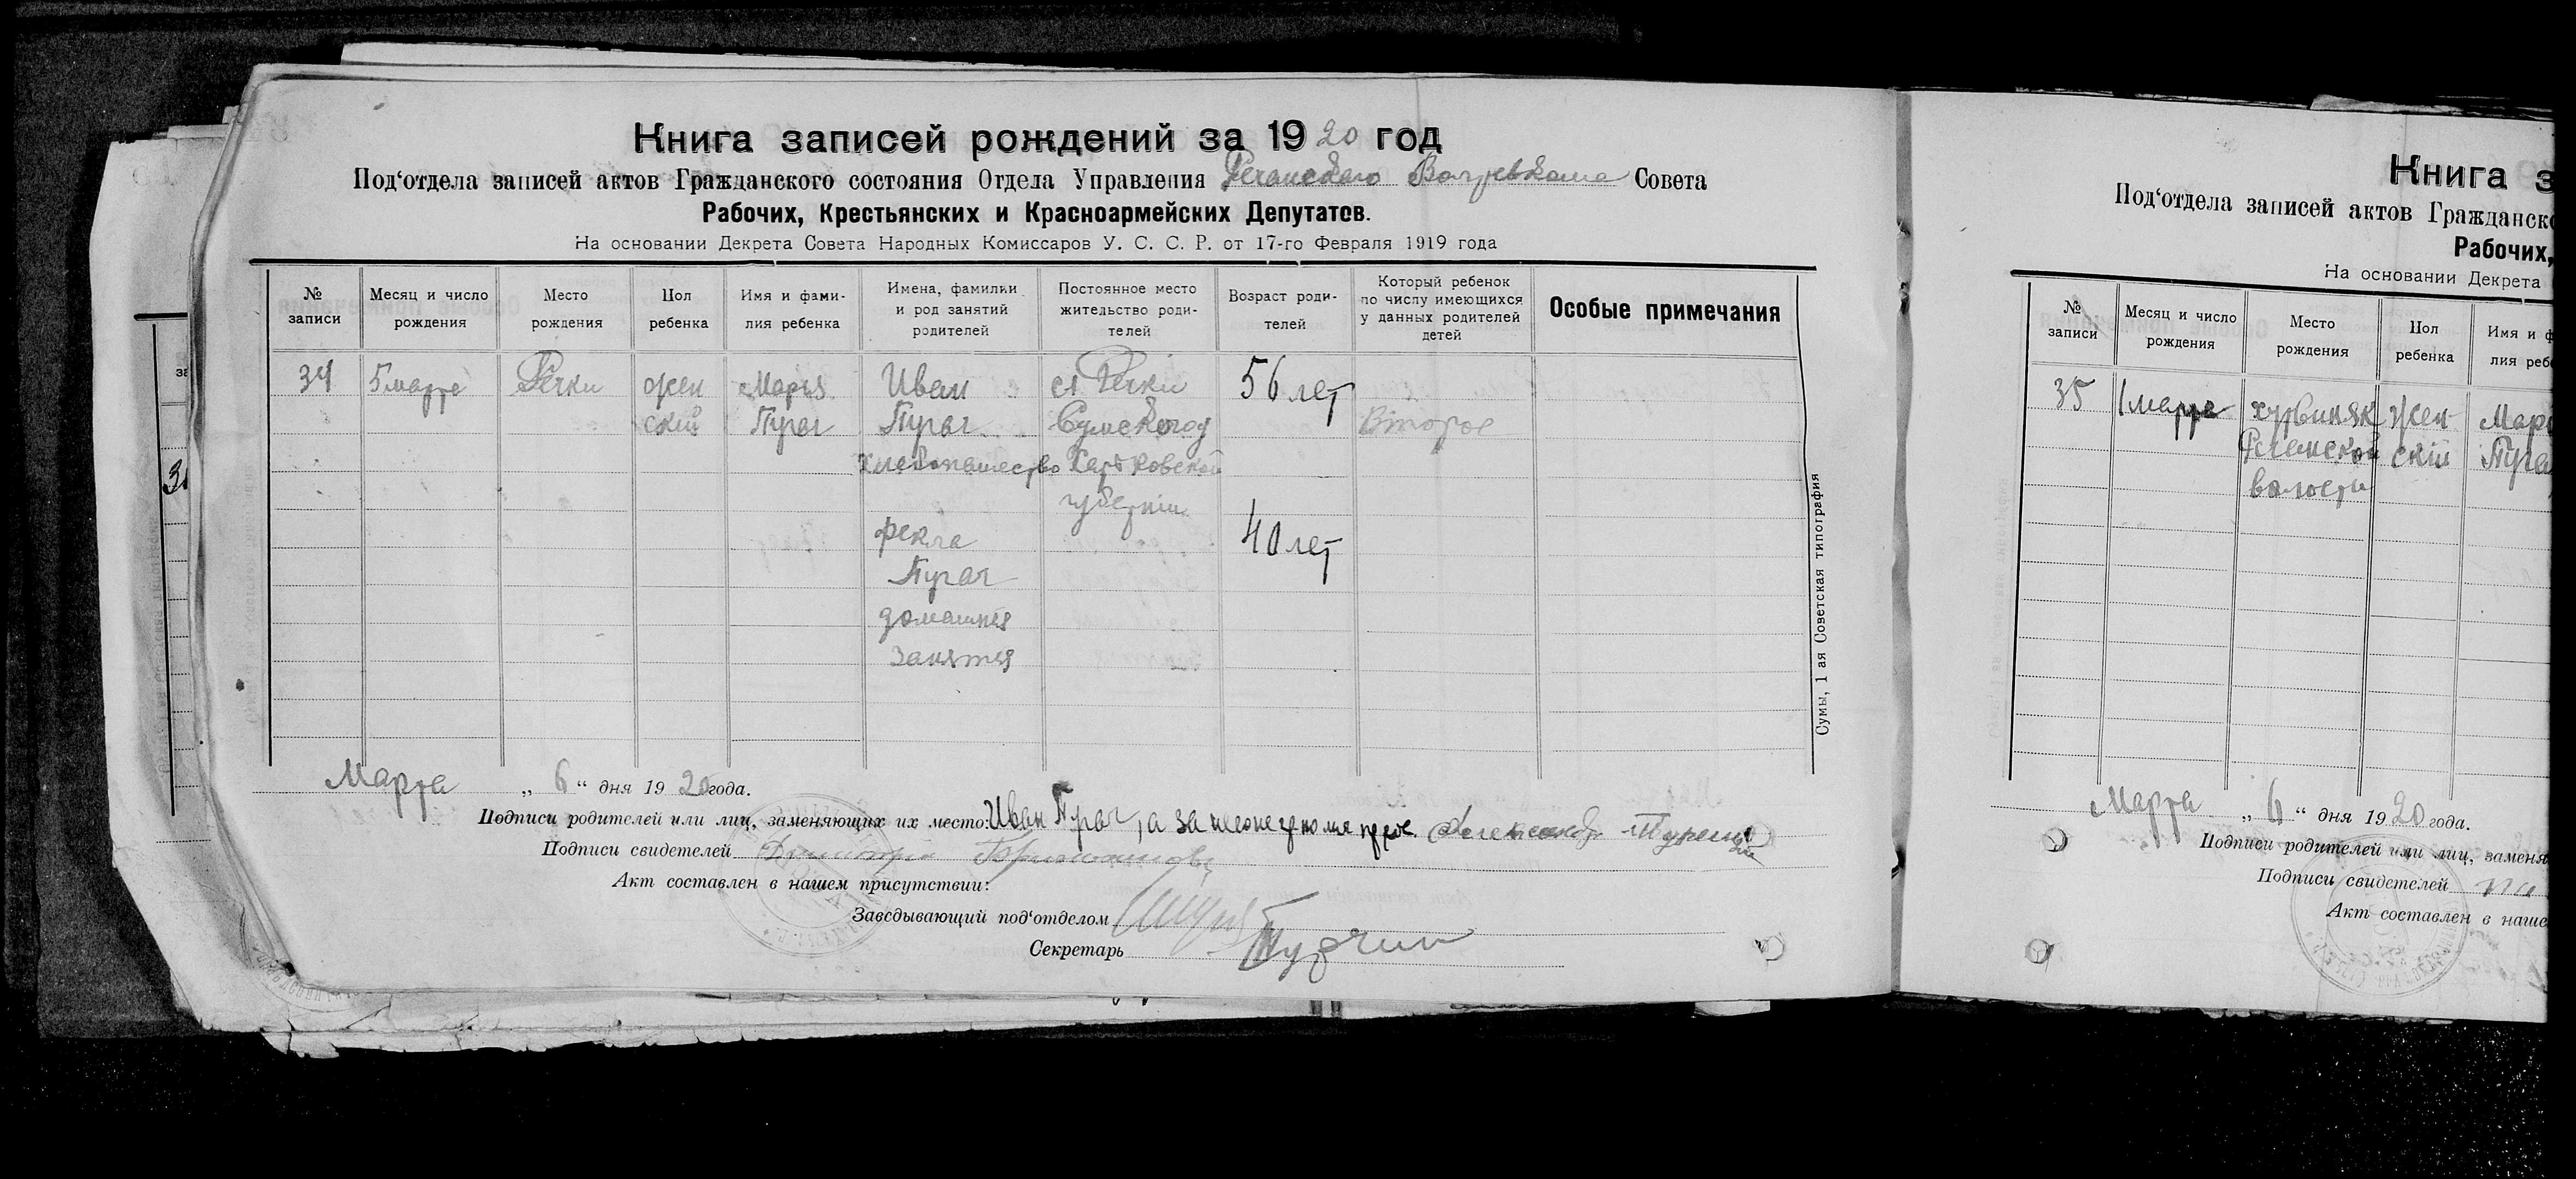 Книга записей рождений за 1920 год
Под‘отдела записей актов Гражданского состояния Отдела Управления Речанского Волревкома Совета
Рабочих, Крестьянских и Красноармейских Депутатов.
На основании Декрета Совета Народных Комиссаров У. С. С. Р. от 17-го Февраля 1919 года
№ записи
Месяц и число рождения
Место рождения
Пол ребенка
Имя и фамилия ребенка
Имена, фамилии и род занятий родителей
Постоянное место жительство родителей
Возраст родителей
Который ребенок по числу имеющихся у данных родителей детей
Особые примечания
34 5 марта Речки женский Марья Пугач
Иван
Пугач
хлебопашество
с. Речки
Сумского у
Харьковской
губернии
56 лет
Второе
Фекла
Пугач
домашния
занятия
40 лет
Сумы, 1 ая Советская типография
Марта „ 6 “ дня 1920 года.
Подписи родителей или лиц, заменяющих их место: Иван Пугач, а за
Подписи свидетелей
Акт составлен в нашем присутствии:
Заведывающий под‘отделом
Секретарь
Книга з
Под‘отдела записей актов Гражданско
Рабочих,
На основании Декрета
№ записи
Месяц и число рождения
Место рождения
Пол ребенка
Имя и ф
лия ребе
35 1 марта
Речанской
волости
Женский
Мар
Пуга
Марта „ 6 “ дня 1920 года.
Подписи родителей или лиц, заменя
Подписи свидетелей
Акт составлен в наше